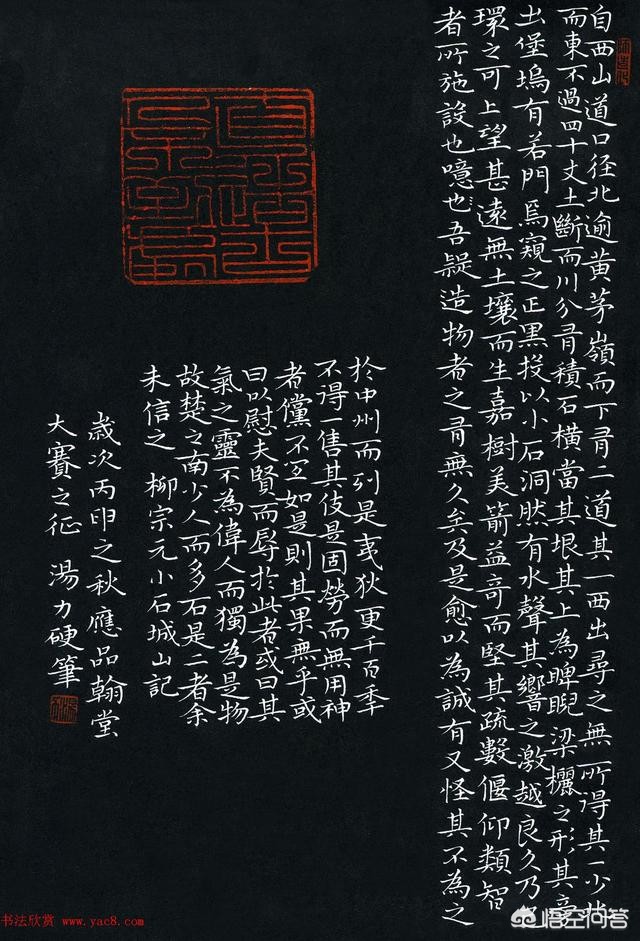 自西山道口径北逾黄茅嶺而下有二道其一西出尋之無所得其一少北
而東不過四十丈土斷而川分有積石橫當其垠其上為睥睨梁欐之形其旁
出堡塢有若門焉窺之正黑投以小石洞然有水聲其響之激越良久乃已
環之可上望甚遠無土壤而生嘉樹美箭益奇而堅其疏數偃仰類智
者所施設也噫也吾疑造物者之有無久矣及是愈以為誠有又怪其不為之
於中州而列是夷狄更千百年
不得一售其伎是固勞而無用神
者儻不宜如是則其果無乎或
曰以慰夫賢而辱於此者或曰其
氣之靈不為偉人而獨為是物
故楚之南少人而多石是二者余
未信之 柳宗元小石城山記
歲次丙申之秋應品翰堂
大賽之征 湯力硬筆
书法欣赏 www.yac8.com
悟空问答